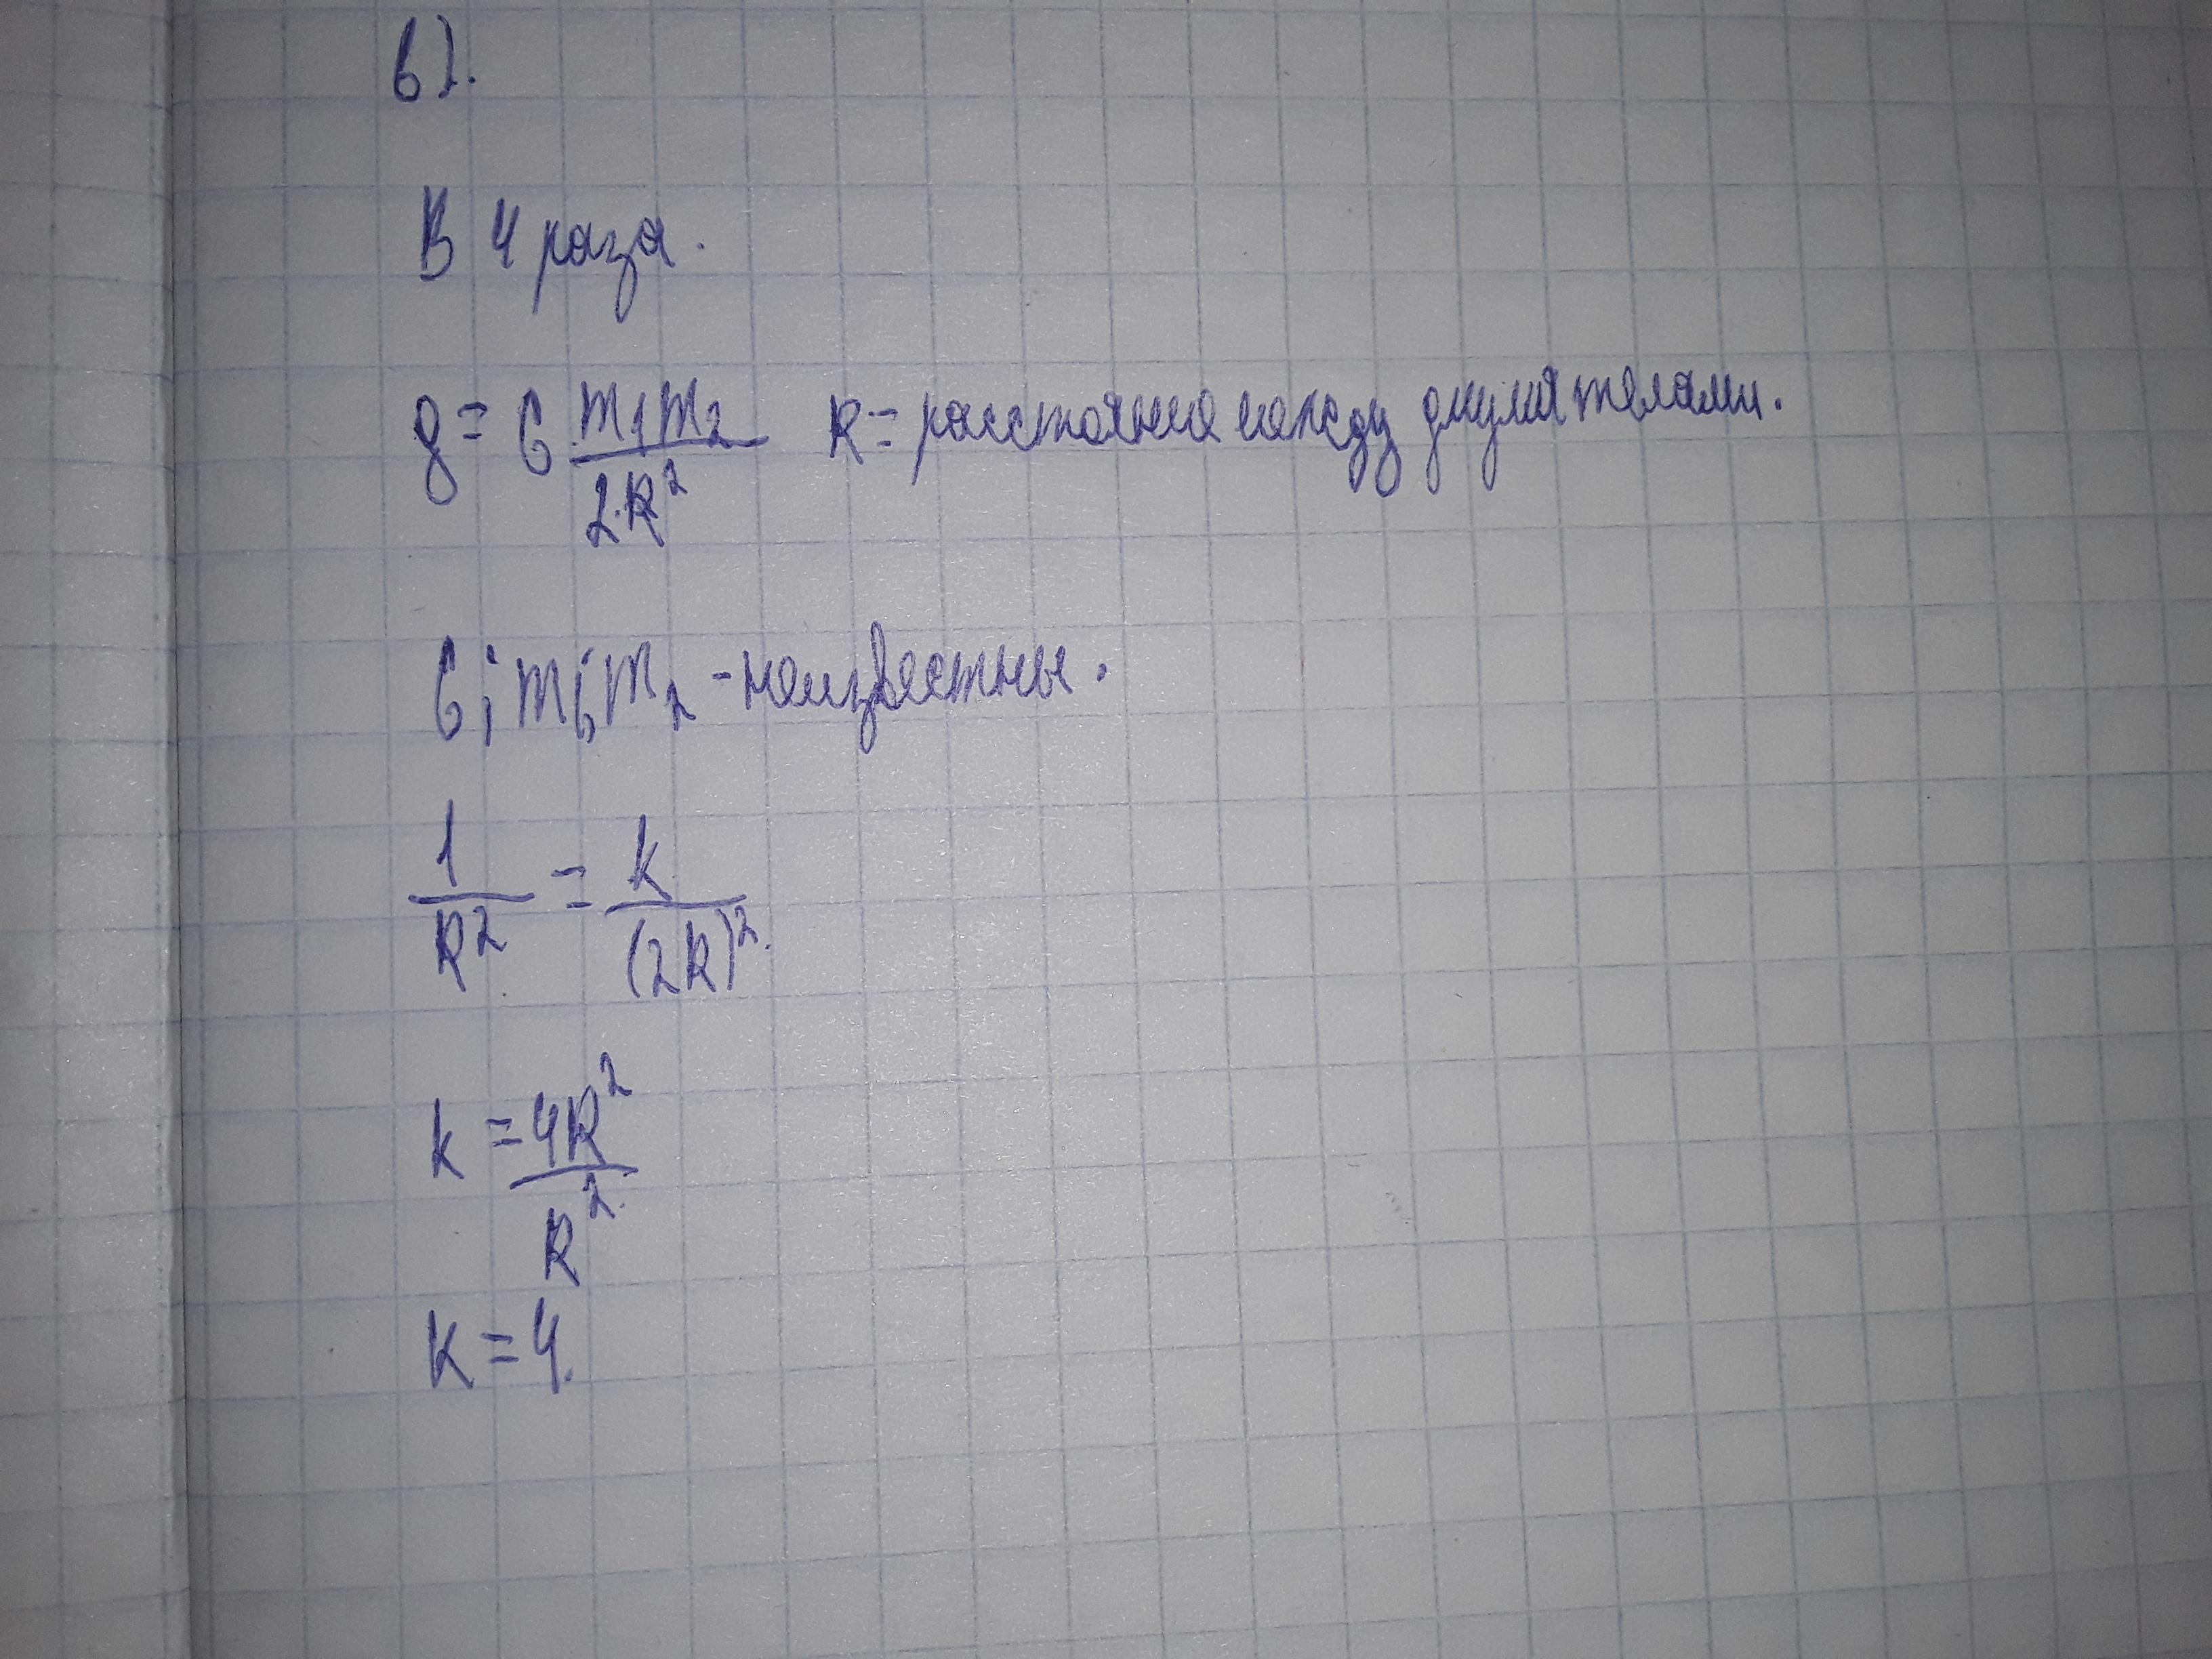 6).
В 4 раза.
g = G m₁m₂ / 2·R² R = расстояние между двумя телами.
G; m₁; m₂ - неизвестны.
1 / R² = k / (2R)².
k = 4R² / R².
k = 4.